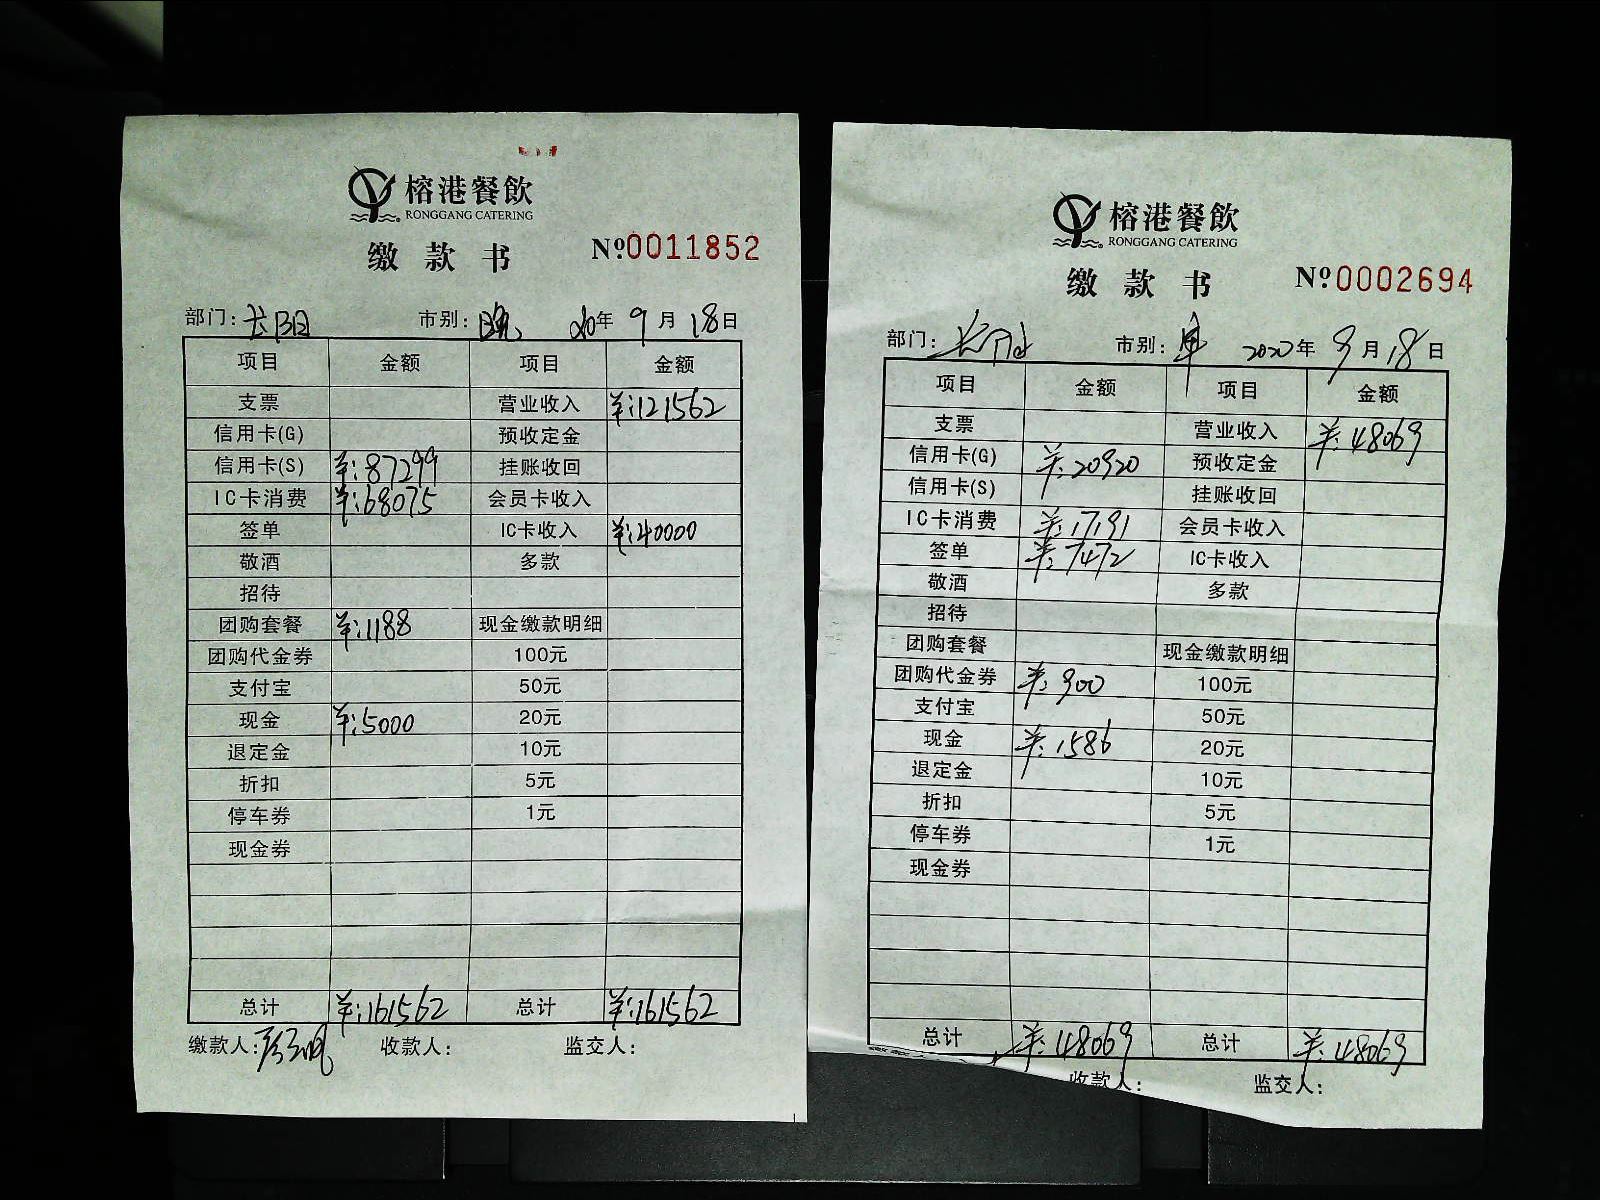 榕港餐飲
RONGGANG CATERING
缴款书 №0011852
部门：长阳 市别：晚 20年9月18日
项目 金额 项目 金额
支票 营业收入 ¥:121562
信用卡(G) 预收定金
信用卡(S) ¥:87299 挂账收回
IC卡消费 ¥:68075 会员卡收入
签单 IC卡收入 ¥:40000
敬酒 多款
招待
团购套餐 ¥:1188 现金缴款明细
团购代金券 100元
支付宝 50元
现金 ¥:5000 20元
退定金 10元
折扣 5元
停车券 1元
现金券
总计 ¥:161562 总计 ¥:161562
缴款人： 收款人： 监交人：
榕港餐飲
RONGGANG CATERING
缴款书 №0002694
部门：长阳 市别： 2020年9月18日
项目 金额 项目 金额
支票 营业收入 ¥:48069
信用卡(G) ¥:20920 预收定金
信用卡(S) 挂账收回
IC卡消费 ¥:17191 会员卡收入
签单 ¥:7472 IC卡收入
敬酒 多款
招待
团购套餐 现金缴款明细
团购代金券 ¥:900 100元
支付宝 50元
现金 ¥:1586 20元
退定金 10元
折扣 5元
停车券 1元
现金券
总计 ¥:48069 总计 ¥:48069
收款人： 监交人：